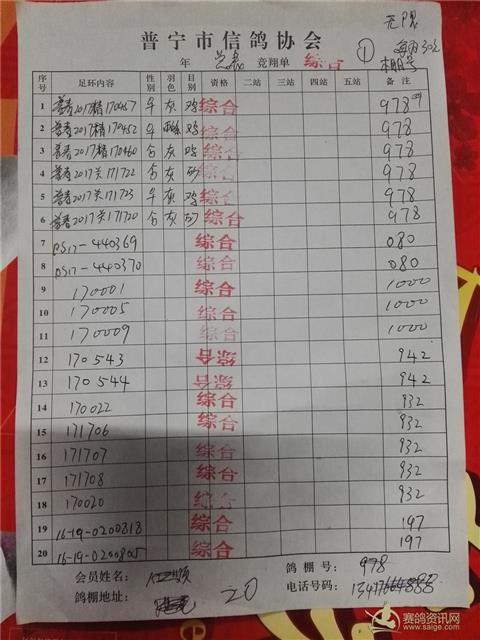 无限
① 每羽30元
棚号
普宁市信鸽协会
年 竞翔单 综合
序号 足环内容 性别 羽色 目别 资格 二站 三站 四站 五站 备注
1 普春2017精170467 灰 鸡 综合 978
2 普春2017精170452 鸡 综合 978
3 普春2017精170460 灰 鸡 综合 978
4 普春2017关171722 灰 砂 综合 978
5 普春2017关171723 灰 鸡 综合 978
6 普春2017关171720 灰 砂 综合 978
7 PS17-440369 综合 080
8 PS17-440370 综合 080
9 170001 综合 1000
10 170005 综合 1000
11 170009 综合 1000
12 170543 综合 942
13 170544 综合 942
14 170022 综合 932
15 171706 综合 932
16 171707 综合 932
17 171708 综合 932
18 170020 综合 932
19 16-19-0200818 综合 197
20 16-19-0200805 综合 197
会员姓名: 鸽棚号: 978
鸽棚地址: 20 电话号码:
赛鸽资讯网
www.saige.com